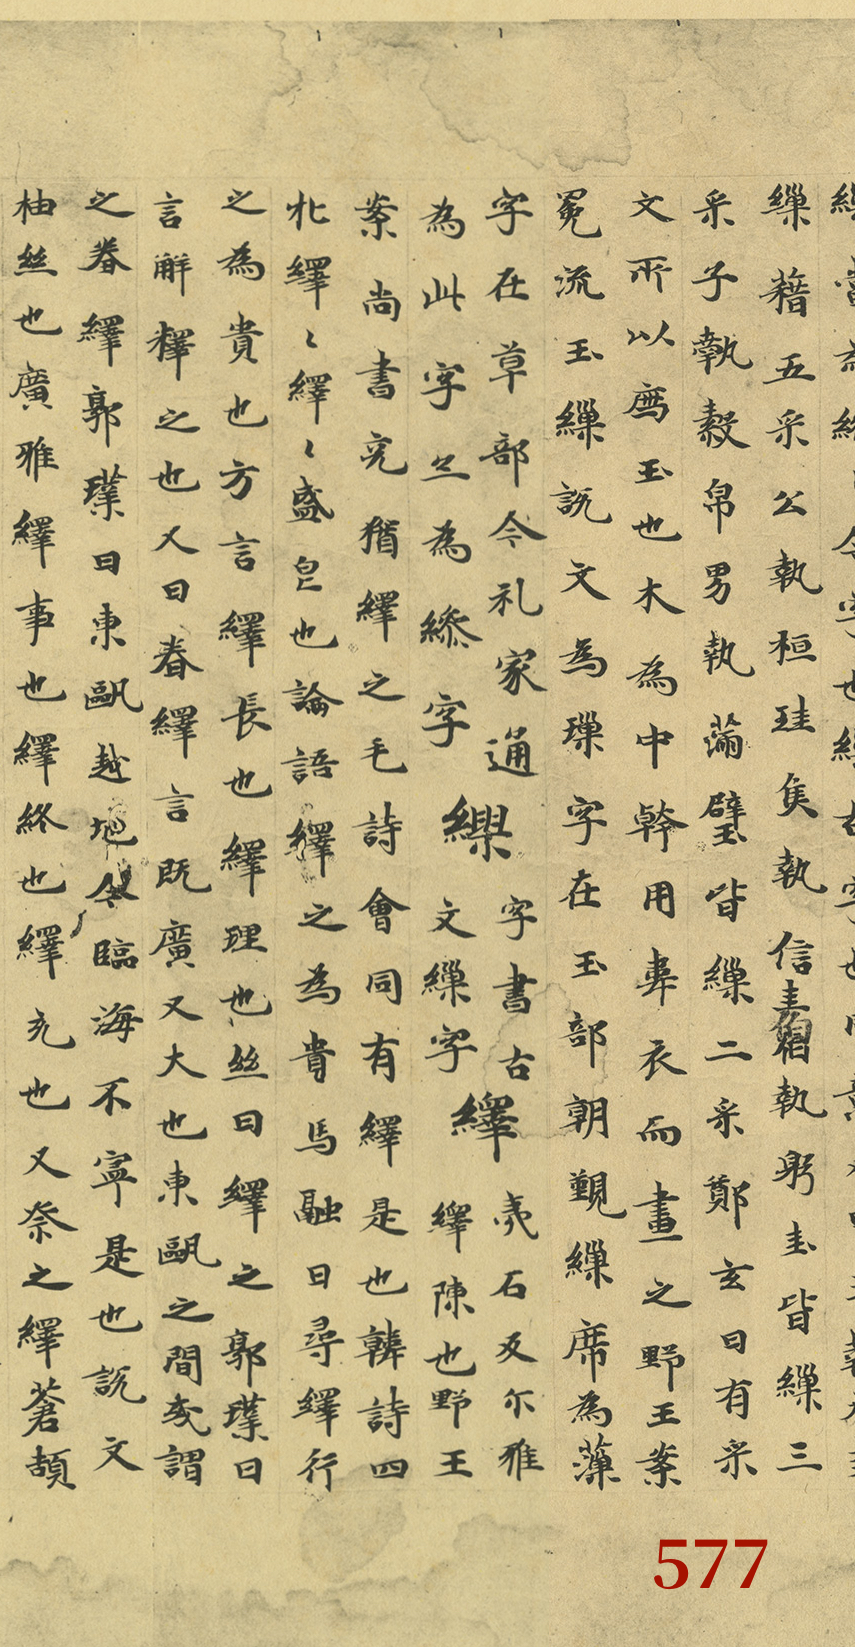 繅藉五采公執桓珪侯執信圭伯執躬圭皆繅三
采子執穀帛男執蒲璧皆繅二采鄭玄曰有采
文所以薦玉也木為中幹用韋衣而畫之野王案
冕流玉繅說文為璪字在玉部朝覲繅席為藻
字在草部今礼家通
為此字亦為縿字
繰
字書古
文繅字
繹
夷石反尔雅
繹陳也野王
案尚書克猶繹之毛詩會同有繹是也韓詩四
牝繹〻繹〻盛皃也論語繹之為貴馬融曰尋繹行
之為貴也方言繹長也繹理也絲曰繹之郭璞曰
言解釋之也又曰眷繹言既廣又大也東甌之間或謂
之眷繹郭璞曰東甌越地今臨海不寧是也說文
柚絲也廣雅繹事也繹終也繹充也又祭之繹蒼頡
577